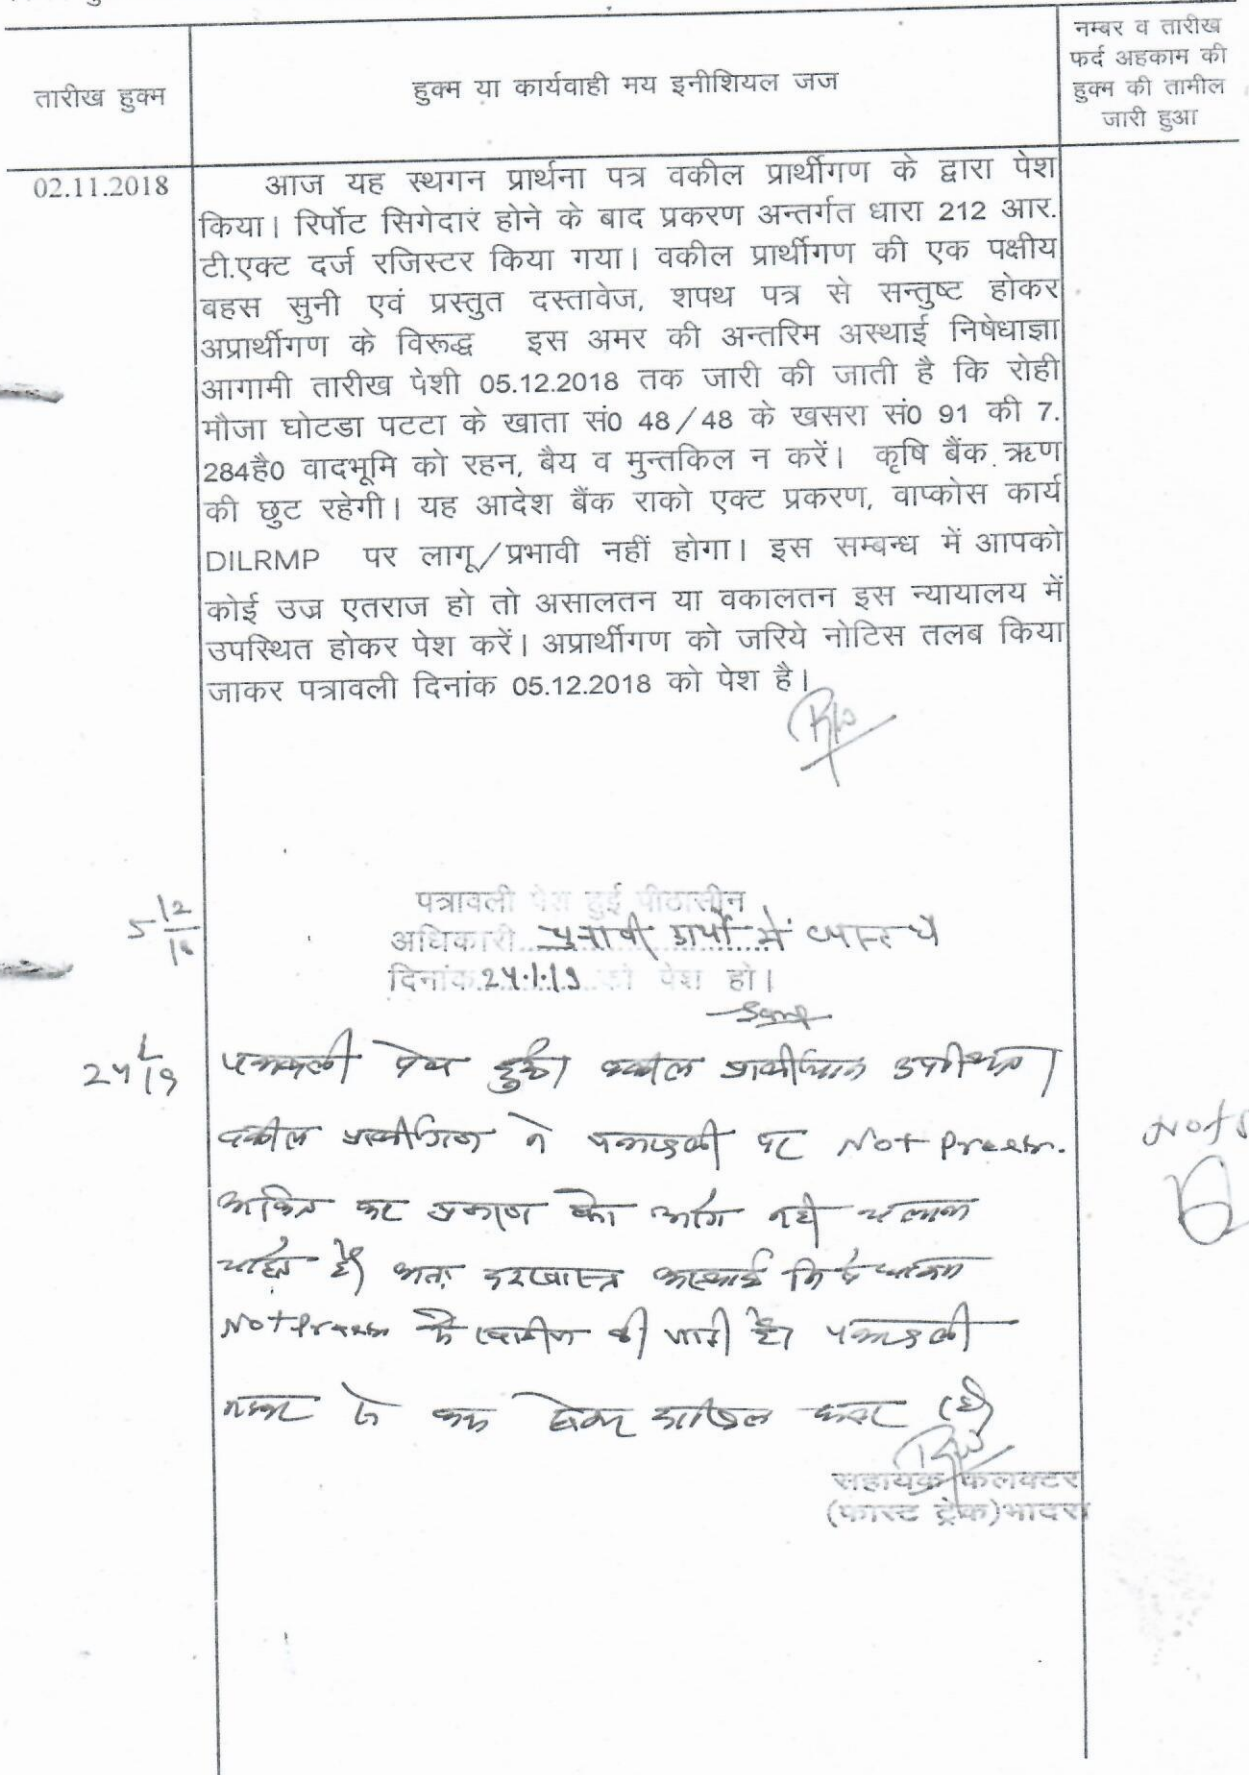 तारीख हुक्म
हुक्म या कार्यवाही मय इनीशियल जज
नम्बर व तारीख
फर्द अहकाम की
हुक्म की तामील
जारी हुआ
02.11.2018
आज यह स्थगन प्रार्थना पत्र वकील प्रार्थीगण के द्वारा पेश
किया। रिर्पोट सिगेदारं होने के बाद प्रकरण अन्तर्गत धारा 212 आर.
टी.एक्ट दर्ज रजिस्टर किया गया। वकील प्रार्थीगण की एक पक्षीय
बहस सुनी एवं प्रस्तुत दस्तावेज, शपथ पत्र से सन्तुष्ट होकर
अप्रार्थीगण के विरूद्ध इस अमर की अन्तरिम अस्थाई निषेधाज्ञा
आगामी तारीख पेशी 05.12.2018 तक जारी की जाती है कि रोही
मौजा घोटडा पटटा के खाता सं0 48/48 के खसरा सं0 91 की 7.
284है0 वादभूमि को रहन, बैय व मुन्तकिल न करें। कृषि बैंक ऋण
की छुट रहेगी। यह आदेश बैंक राको एक्ट प्रकरण, वाप्कोस कार्य
DILRMP पर लागू/प्रभावी नहीं होगा। इस सम्बन्ध में आपको
कोई उज्र एतराज हो तो असालतन या वकालतन इस न्यायालय में
उपस्थित होकर पेश करें। अप्रार्थीगण को जरिये नोटिस तलब किया
जाकर पत्रावली दिनांक 05.12.2018 को पेश है।
5 12/18
पत्रावली पेश हुई पीठासीन
अधिकारी चुनावी कार्यो में व्यस्त है
दिनांक 24.1.19 को पेश हो।
24 1/19
पत्रावली पेश हुई। वकील प्रार्थीगण उपस्थित।
वकील प्रार्थीगण ने पत्रावली पर Not Press
अंकित कर प्रकरण को आगे नहीं चलाना
चाहते है। अतः दरखास्त अस्थाई निषेधाज्ञा
Not Press में खारीज की जाती है। पत्रावली
नम्बर से कम होकर दाखिल दफ्तर हो।
सहायक कलक्टर
(फास्ट ट्रेक)भादरा